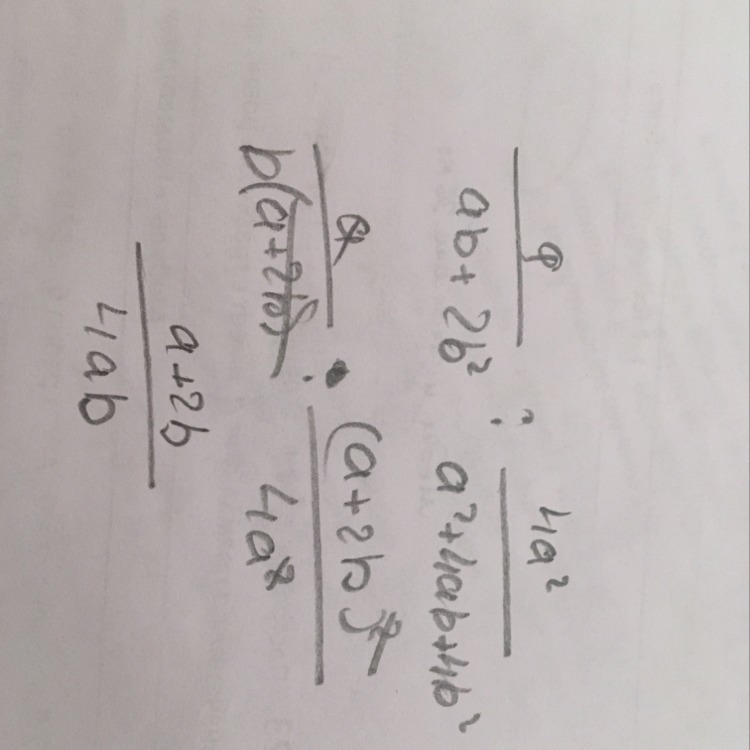 a/(ab+2b²) : 4a²/(a²+4ab+4b²)
a/(b(a+2b)) · (a+2b)²/(4a²)
(a+2b)/(4ab)